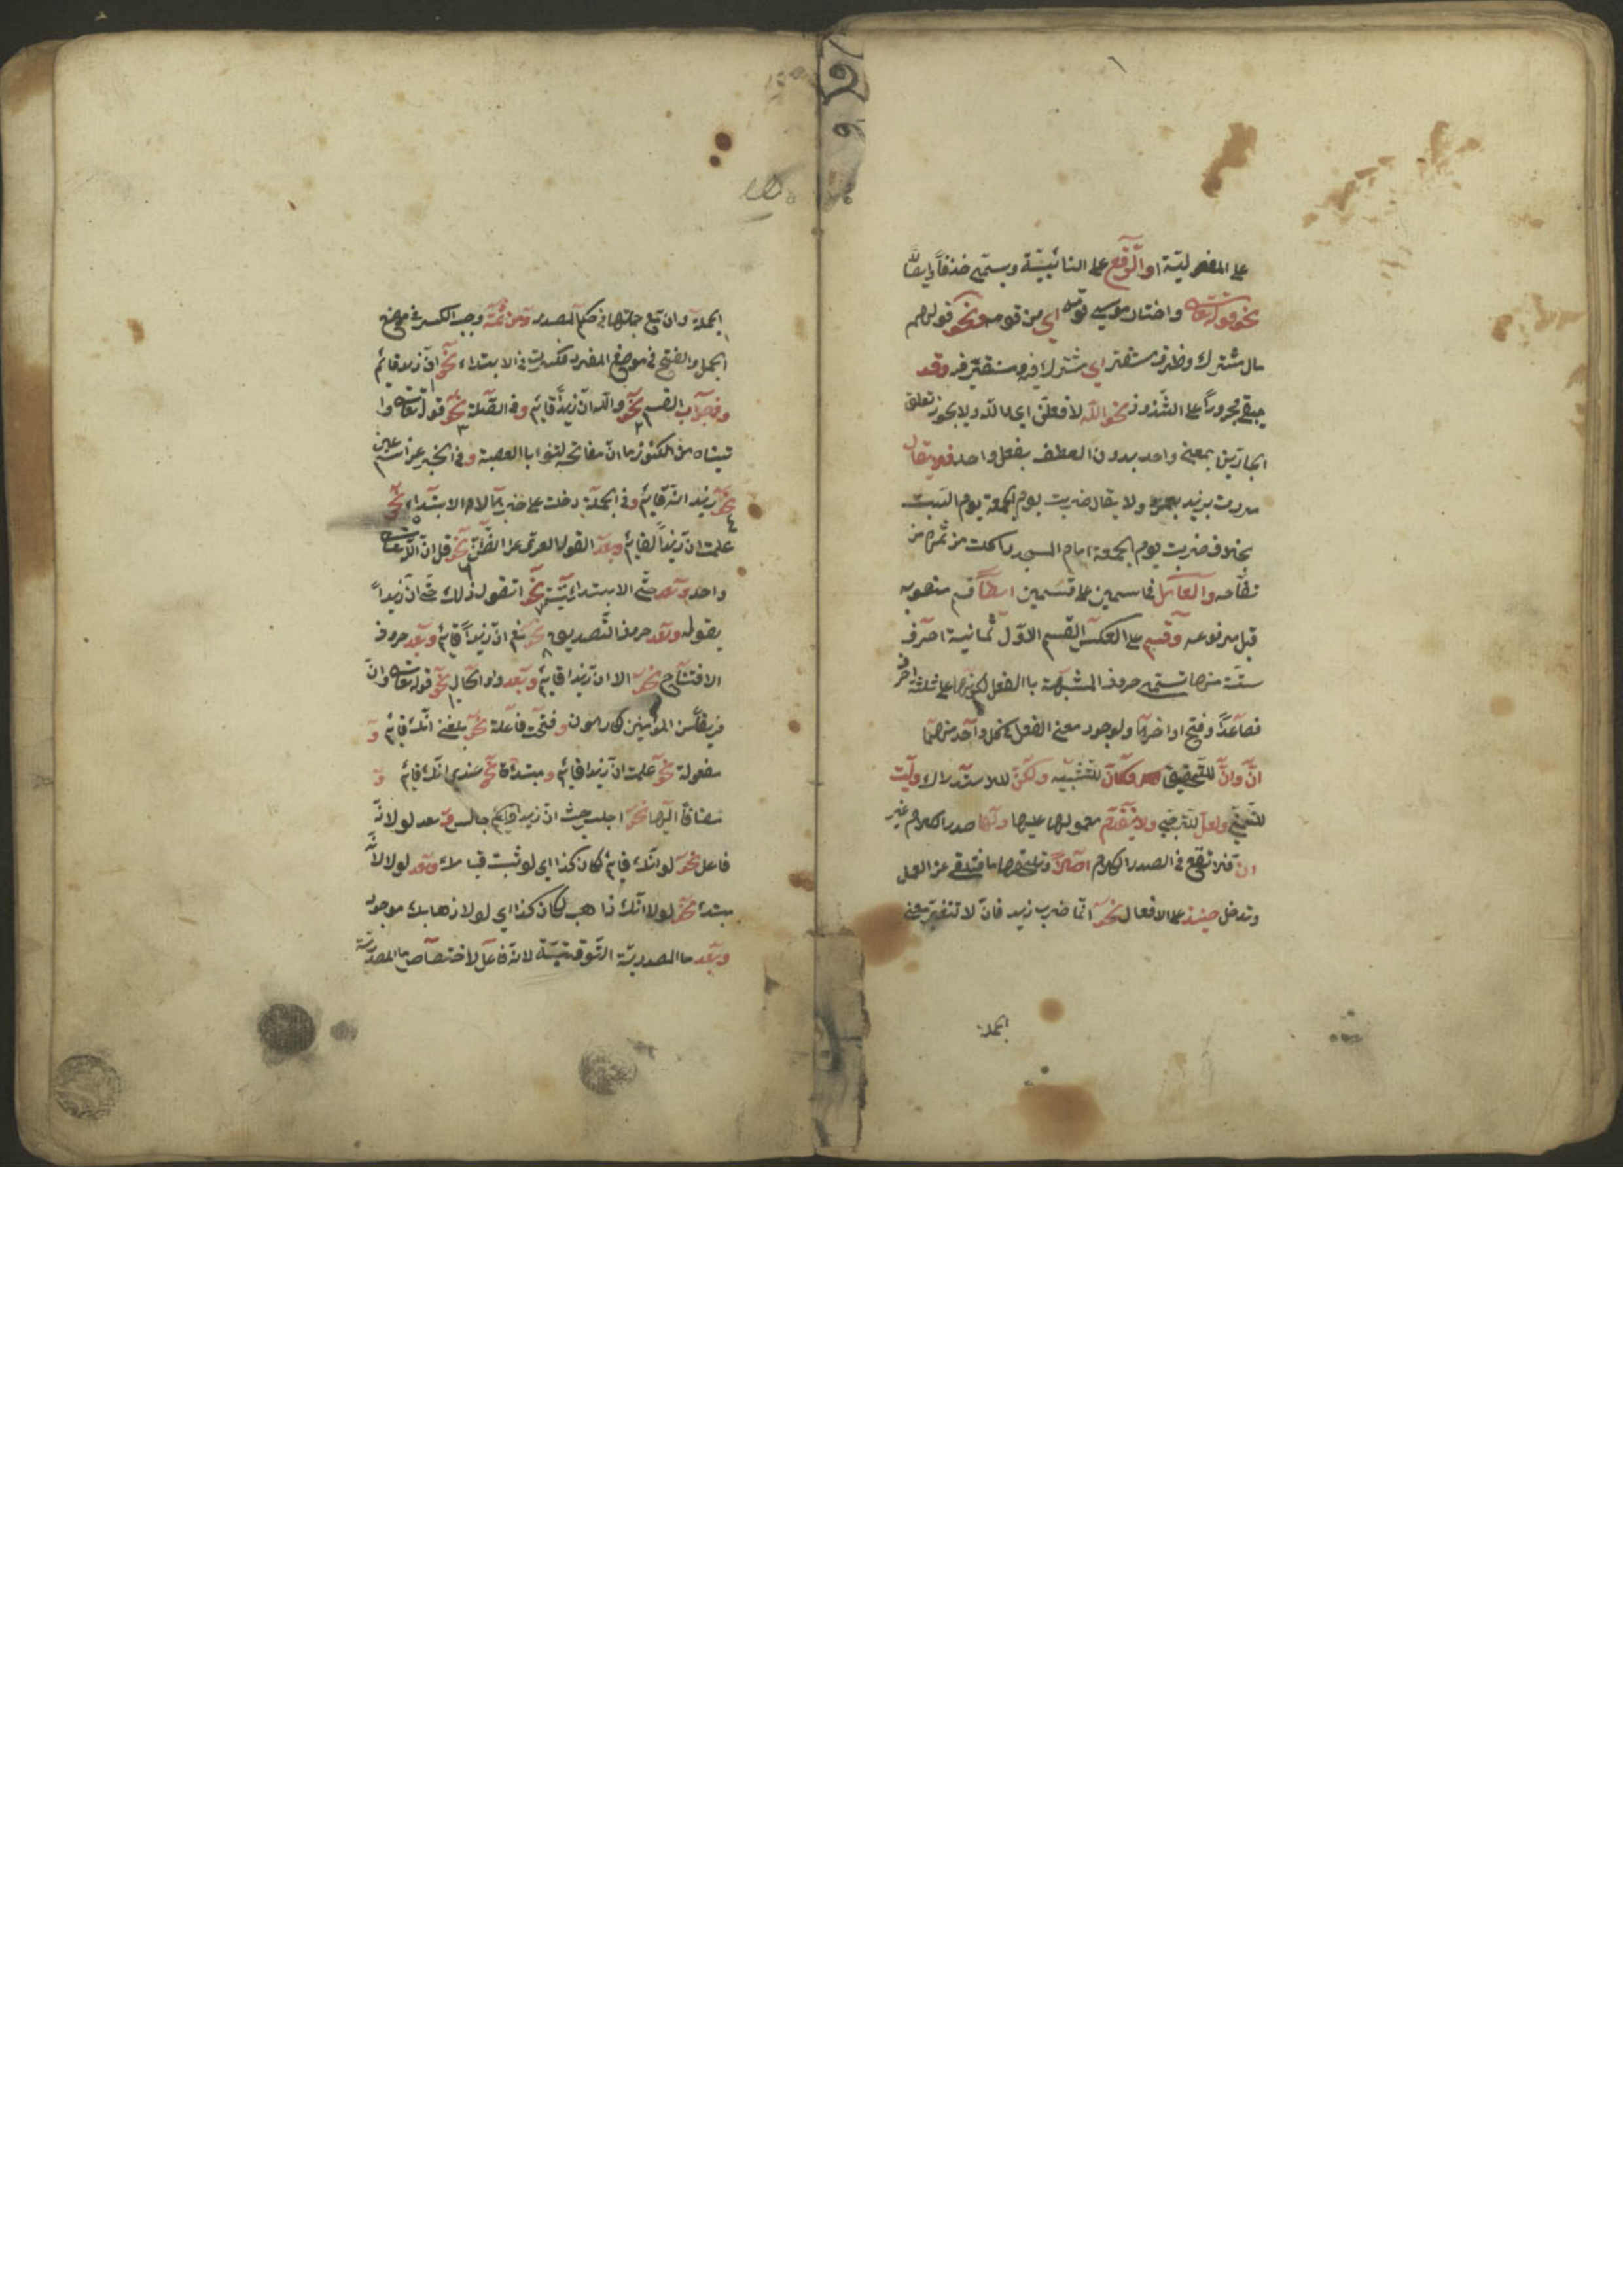 على المفعولية او الرفع على النائبية ويسمى حذفا وايصالا
نحو قوله تعالى واختار موسى قومه اى من قومه ونحو قولهم
مال مشترك وظرف مستقر اي مشترك فيه ومستقر فيه وقد
يبقى مجرورا على الشذوذ نحو الله لأفعلن اى والله ولا يجوز تعلق
الجارين بمعنى واحد بدون العطف بفعل واحد فلا يقال
مررت بزيد بعمرو ولا يقال ضربت يوم الجمعة يوم السبت
بخلاف ضربت يوم الجمعة امام المسجد واكلت من ثمره من
تفاحه والعامل فى اسمين على قسمين ايضا قسم منصوبه
قبل مرفوعه وقسم على العكس القسم الاول ثمانية احرف
ستة منها تسمى حروف المشبهة باالفعل لكونها على ثلثة احرف
فصاعدا وفتح اواخرها ولوجود معنى الفعل فى كل واحد منها
انّ وانّ للتحقيق وكأنّ للتشبيه ولكنّ للاستدراك وليت
للتمنى ولعل للترجى ولا يتقدم معمولها عليها ولها صدر الكلام غير
انّ فلا تقع فى الصدر الكلام اصلا وتلحقها ما فتلغى عن العمل
وتدخل حينئذ على الافعال نحو انما ضرب زيد فانّ لا تتغير معنى
الجملة
الجملة وانّ مع جملتها فى حكم المصدر ومن ثمة وجب الكسر فى موضع
الجمل والفتح فى موضع المفرد فكسرت فى الابتداء نحو انّ زيدا قائم
وفى جواب القسم نحو والله انّ زيدا قائم وفى الصلة نحو قوله تعالى وآ
تيناه من الكنوز ما انّ مفاتحه لتنوأ باالعصبة وفى الخبر عن اسم عين
نحو زيد انه قائم وفى الجملة دخلت على خبرها لام الابتداء نحو
علمت انّ زيدا لقائم وبعد القول العرى عن الظن نحو قل انّ الله تعالى
واحد وبعد حتى الابتدائية نحو اتقول ذلك حتى انّ زيدا
يقوله وبعد حروف التصديق نحو نعم انّ زيدا قائم وبعد حروف
الافتتاح نحو الا انّ زيدا قائم وبعد واو الحال نحو قوله تعالى وانّ
فريقا من المؤمنين لكارهون وفتحت فاعلة نحو بلغنى انّك قائم و
مفعولة نحو علمت انّ زيدا قائم ومبتدأة نحو عندى انّك قائم و
مضافا اليها نحو اجلس حيث انّ زيدا جالس وبعد لو لانه
فاعل نحو لو انّك قائم لكان كذا اى لو ثبت قيامك وبعد لولا لانه
مبتدأ نحو لولا انّك ذاهب لكان كذا اى لولا ذهابك موجود
وبعد ما المصدرية التوقيتية لانه فاعل لاختصاص ما المصدرية